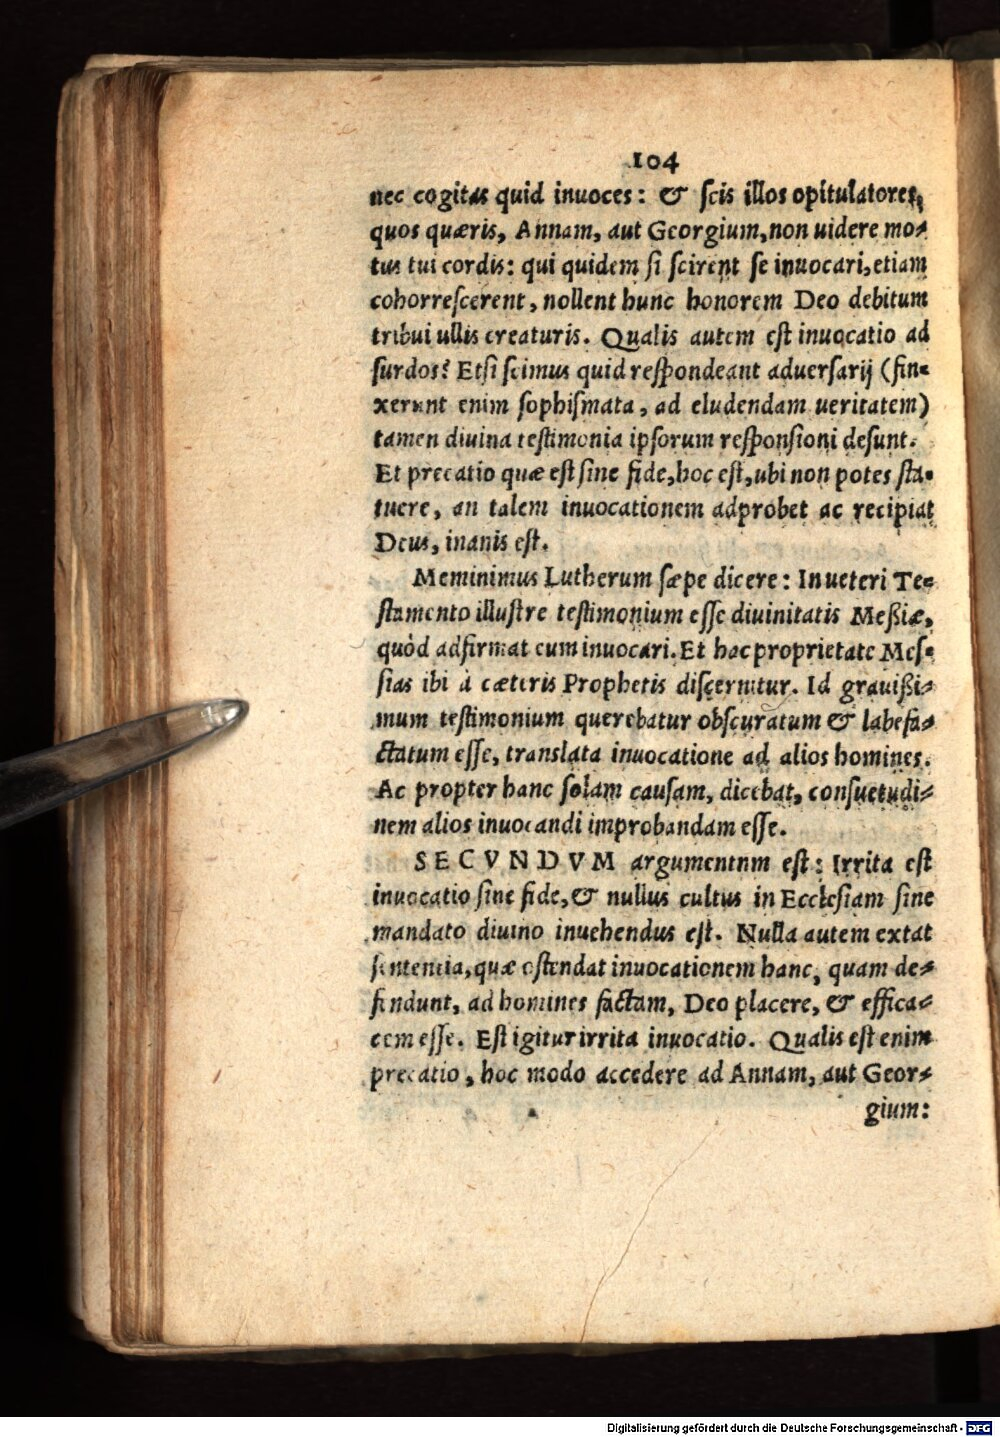 104
nec cogitas quid inuoces: & scis illos opitulatores,
quos quæris, Annam, aut Georgium, non uidere mo-
tus tui cordis: qui quidem si scirent se inuocari, etiam
cohorrescerent, nollent hunc honorem Deo debitum
tribui ullis creaturis. Qualis autem est inuocatio ad
surdos? Etsi scimus quid respondeant aduersarij (fin-
xerunt enim sophismata, ad eludendam ueritatem)
tamen diuina testimonia ipsorum responsioni desunt.
Et precatio quæ est sine fide, hoc est, ubi non potes sta-
tuere, an talem inuocationem adprobet ac recipiat
Deus, inanis est.
Meminimus Lutherum sæpe dicere: In ueteri Te-
stamento illustre testimonium esse diuinitatis Meßiæ,
quòd adfirmat eum inuocari. Et hac proprietate Mes-
sias ibi à cæteris Prophetis discernitur. Id grauißi-
mum testimonium querebatur obscuratum & labefa-
ctatum esse, translata inuocatione ad alios homines.
Ac propter hanc solam causam, dicebat, consuetudi-
nem alios inuocandi improbandam esse.
SECVNDVM argumentnm est: Irrita est
inuocatio sine fide, & nullus cultus in Ecclesiam sine
mandato diuino inuehendus est. Nulla autem extat
sententia, quæ ostendat inuocationem hanc, quam de-
fendunt, ad homines factam, Deo placere, & effica-
cem esse. Est igitur irrita inuocatio. Qualis est enim
precatio, hoc modo accedere ad Annam, aut Geor-
gium:
Digitalisierung gefördert durch die Deutsche Forschungsgemeinschaft - DFG